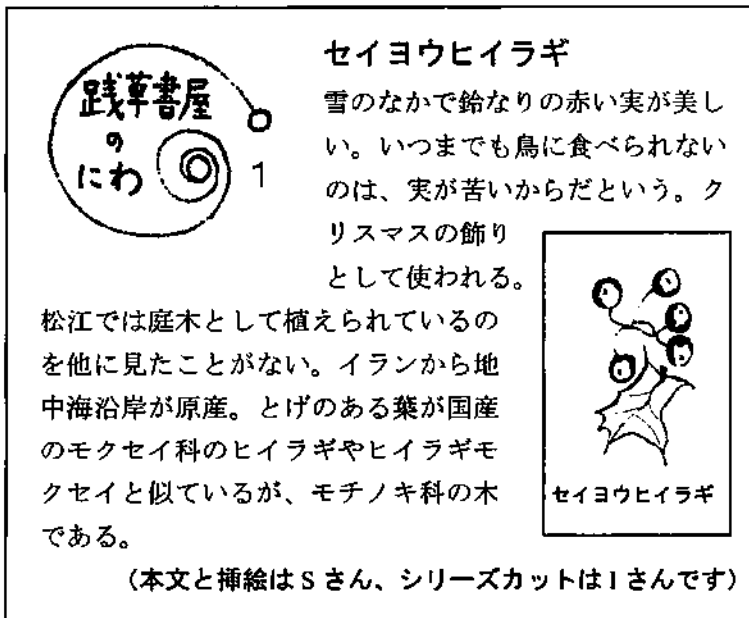 践草書屋
の
にわ
1
セイヨウヒイラギ
雪のなかで鈴なりの赤い実が美し
い。いつまでも鳥に食べられない
のは、実が苦いからだという。ク
リスマスの飾り
として使われる。
松江では庭木として植えられているの
を他に見たことがない。イランから地
中海沿岸が原産。とげのある葉が国産
のモクセイ科のヒイラギやヒイラギモ
クセイと似ているが、モチノキ科の木
である。
セイヨウヒイラギ
（本文と挿絵はSさん、シリーズカットはIさんです）